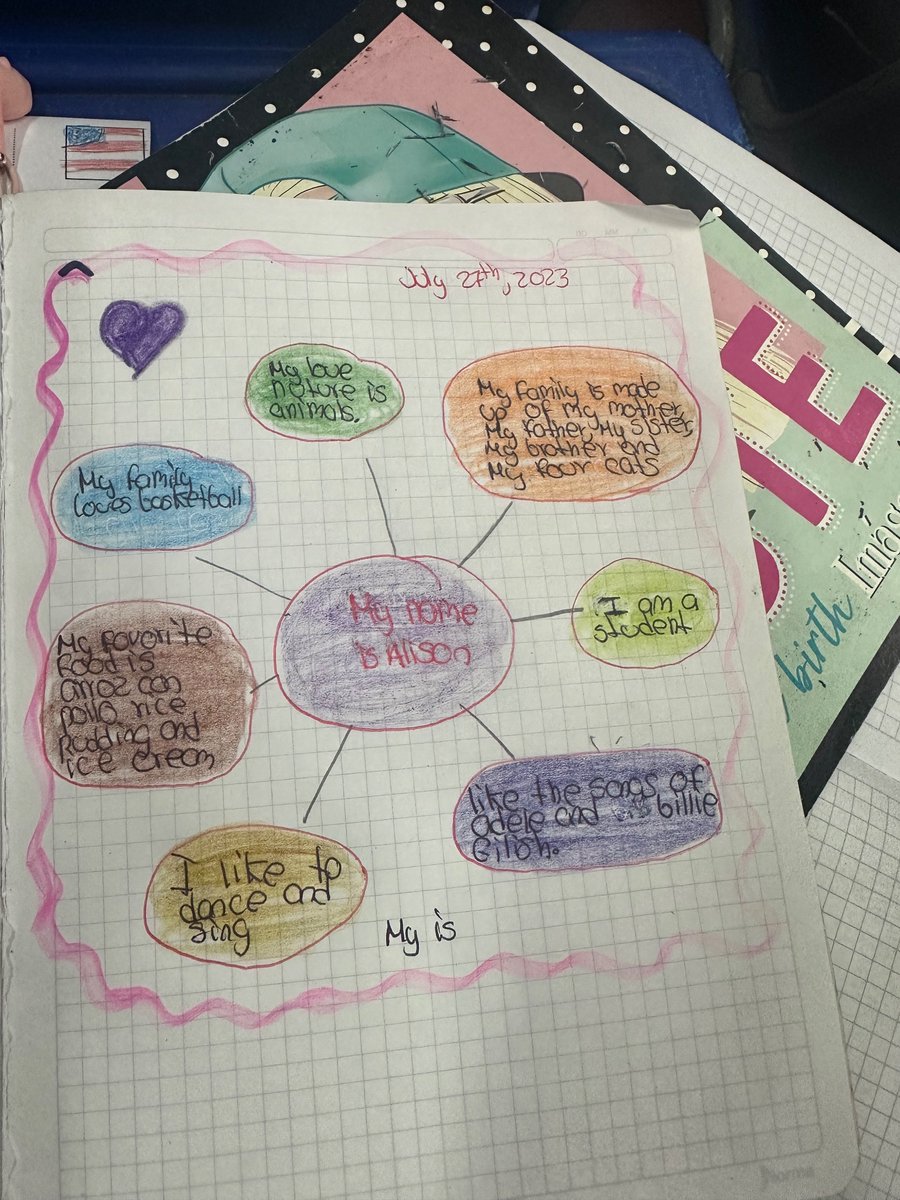 July 27th, 2023
My love
nature is
animals.
My family is made
up of my mother,
My father, My sister,
My brother and
My four cats
My family
loves basketball
My name
is Alison
I am a
student
My favorite
food is
arroz con
pollo, rice
pudding and
ice cream
like the songs of
adele and billie
Eilish.
I like to
dance and
sing
My is
birth
Norma